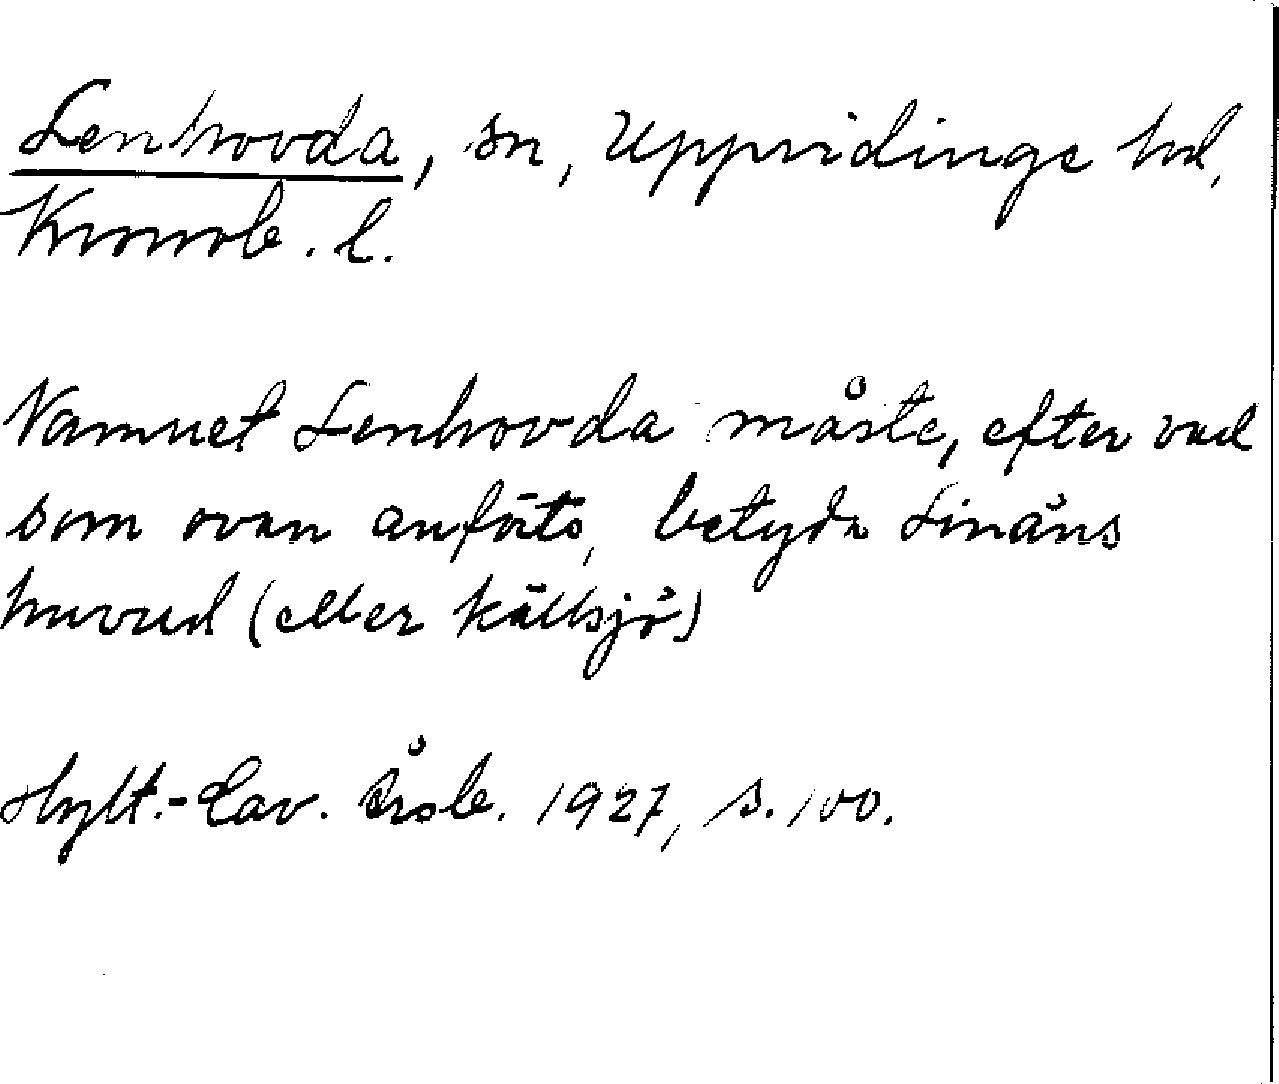 Lenhovda, sn, Uppvidinge hd,
Kronob. l.
Namnet Lenhovda måste, efter vad
som ovan anförts, betyda Linåns
huvud (eller källsjö)
Hylt.-Cav. Årsb. 1927, s. 100.